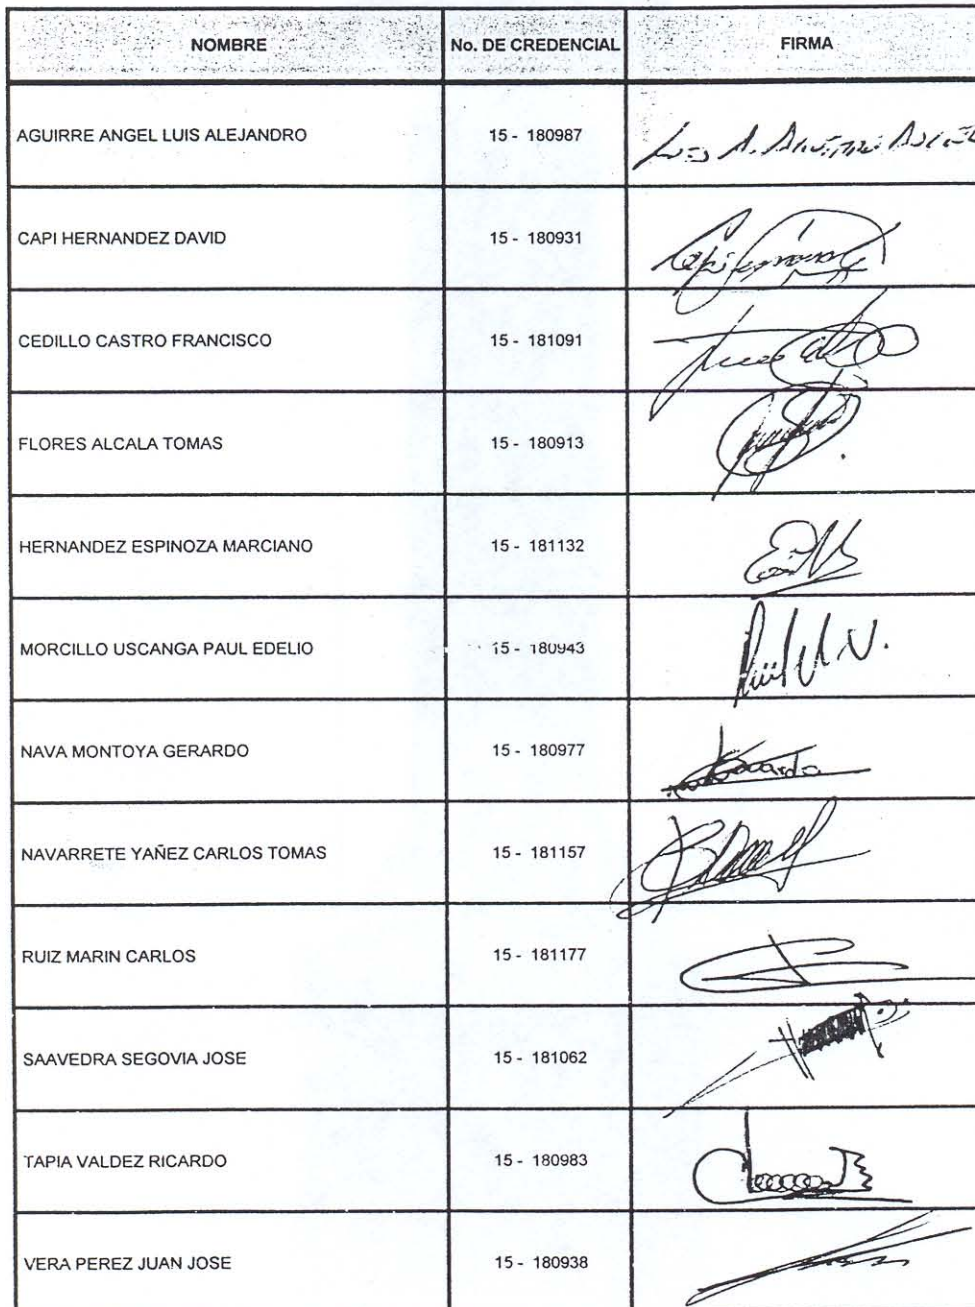 NOMBRE No. DE CREDENCIAL FIRMA
AGUIRRE ANGEL LUIS ALEJANDRO 15 - 180987 Luis A. Aguirre Angel
CAPI HERNANDEZ DAVID 15 - 180931
CEDILLO CASTRO FRANCISCO 15 - 181091
FLORES ALCALA TOMAS 15 - 180913
HERNANDEZ ESPINOZA MARCIANO 15 - 181132
MORCILLO USCANGA PAUL EDELIO 15 - 180943
NAVA MONTOYA GERARDO 15 - 180977
NAVARRETE YAÑEZ CARLOS TOMAS 15 - 181157
RUIZ MARIN CARLOS 15 - 181177
SAAVEDRA SEGOVIA JOSE 15 - 181062
TAPIA VALDEZ RICARDO 15 - 180983
VERA PEREZ JUAN JOSE 15 - 180938